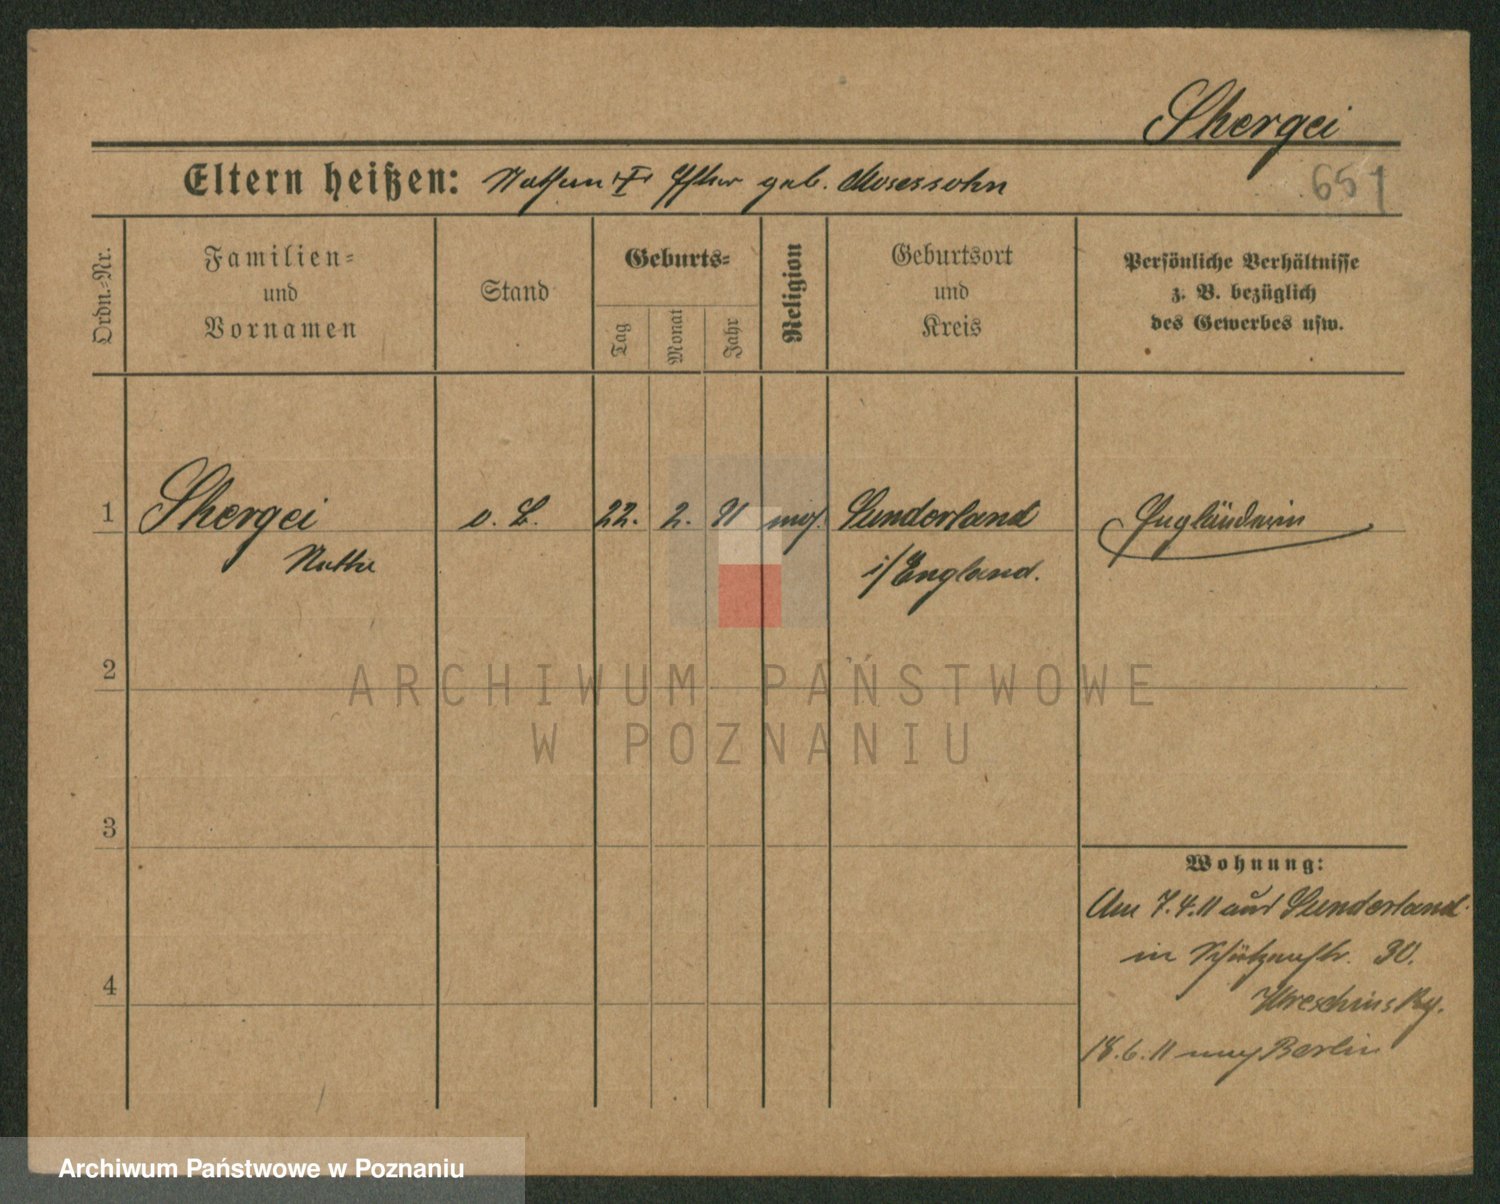 Shergei
651
Eltern heißen: Nathan † Esther geb. Mosessohn
Ordn.-Nr.
Familien-
und
Vornamen
Stand
Geburts-
Tag
Monat
Jahr
Religion
Geburtsort
und
Kreis
Persönliche Verhältnisse
z. B. bezüglich
des Gewerbes usw.
1 Shergei o. B. 22. 2. 91 mos. Sunderland Engländerin
i/England.
2
ARCHIWUM PAŃSTWOWE
W POZNANIU
3
Wohnung:
Am 7.4.11 aus Sunderland
in Schützenstr. 30.
4
Wreschinsky.
18.6.11 nach Berlin
Archiwum Państwowe w Poznaniu